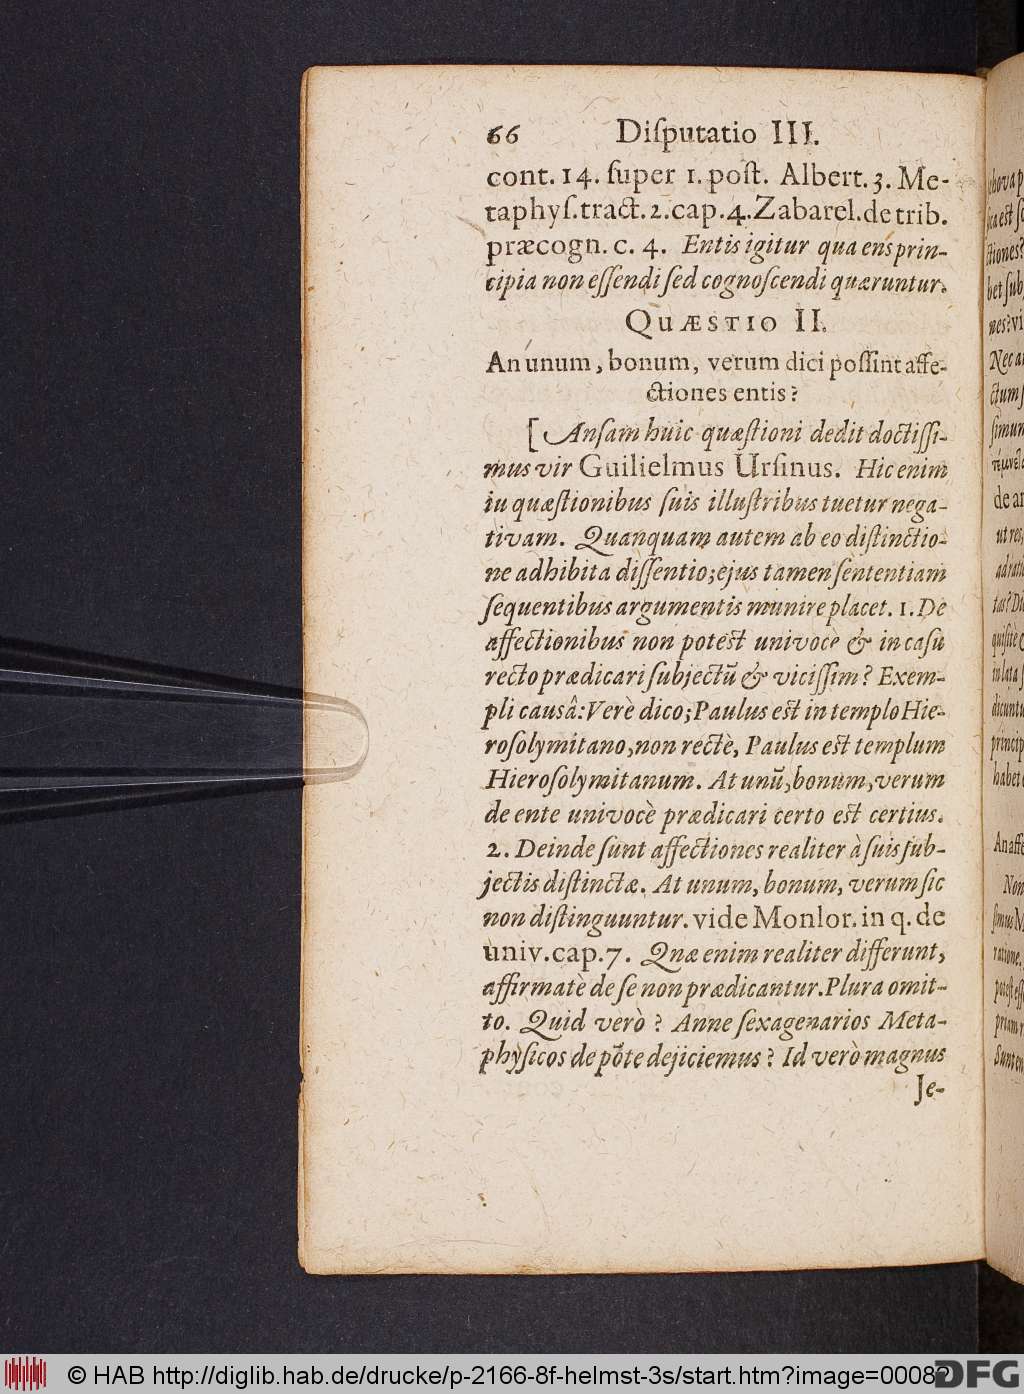 66 Diſputatio III.
cont. 14. ſuper 1. poſt. Albert. 3. Me-
taphyſ. tract. 2. cap. 4. Zabarel. de trib.
præcogn. c. 4. Entis igitur qua ens prin-
cipia non eſſendi ſed cognoſcendi quæruntur.
QUÆSTIO II.
An unum, bonum, verum dici poſſint affe-
ctiones entis?
[Anſam huic quæſtioni dedit doctiſſi-
mus vir Guilielmus Urſinus. Hic enim
iu quæſtionibus ſuis illuſtribus tuetur nega-
tivam. Quanquam autem ab eo diſtinctio-
ne adhibita diſſentio; ejus tamen ſententiam
ſequentibus argumentis munire placet. 1. De
affectionibus non poteſt univocè & in caſu
recto prædicari ſubjectũ & viciſſim? Exem-
pli causâ: Verè dico; Paulus eſt in templo Hie-
roſolymitano, non rectè, Paulus eſt templum
Hieroſolymitanum. At unũ, bonum, verum
de ente univocè prædicari certo eſt certius.
2. Deinde ſunt affectiones realiter à ſuis ſub-
jectis diſtinctæ. At unum, bonum, verum ſic
non diſtinguuntur. vide Monlor. in q. de
univ. cap. 7. Qnæ enim realiter differunt,
affirmatè de ſe non prædicantur. Plura omit-
to. Quid verò? Anne ſexagenarios Meta-
phyſicos de põte dejiciemus? Id verò magnus
Je-
© HAB http://diglib.hab.de/drucke/p-2166-8f-helmst-3s/start.htm?image=0008
DFG